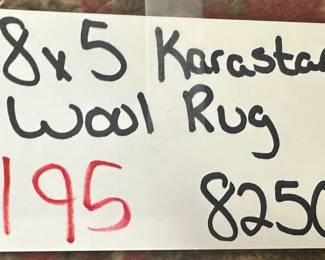 8x5 Karastan
Wool Rug
195 8250